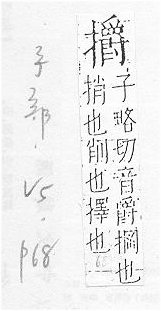 子略切音爵掆也
捎也削也擇也
手部·V5·P68